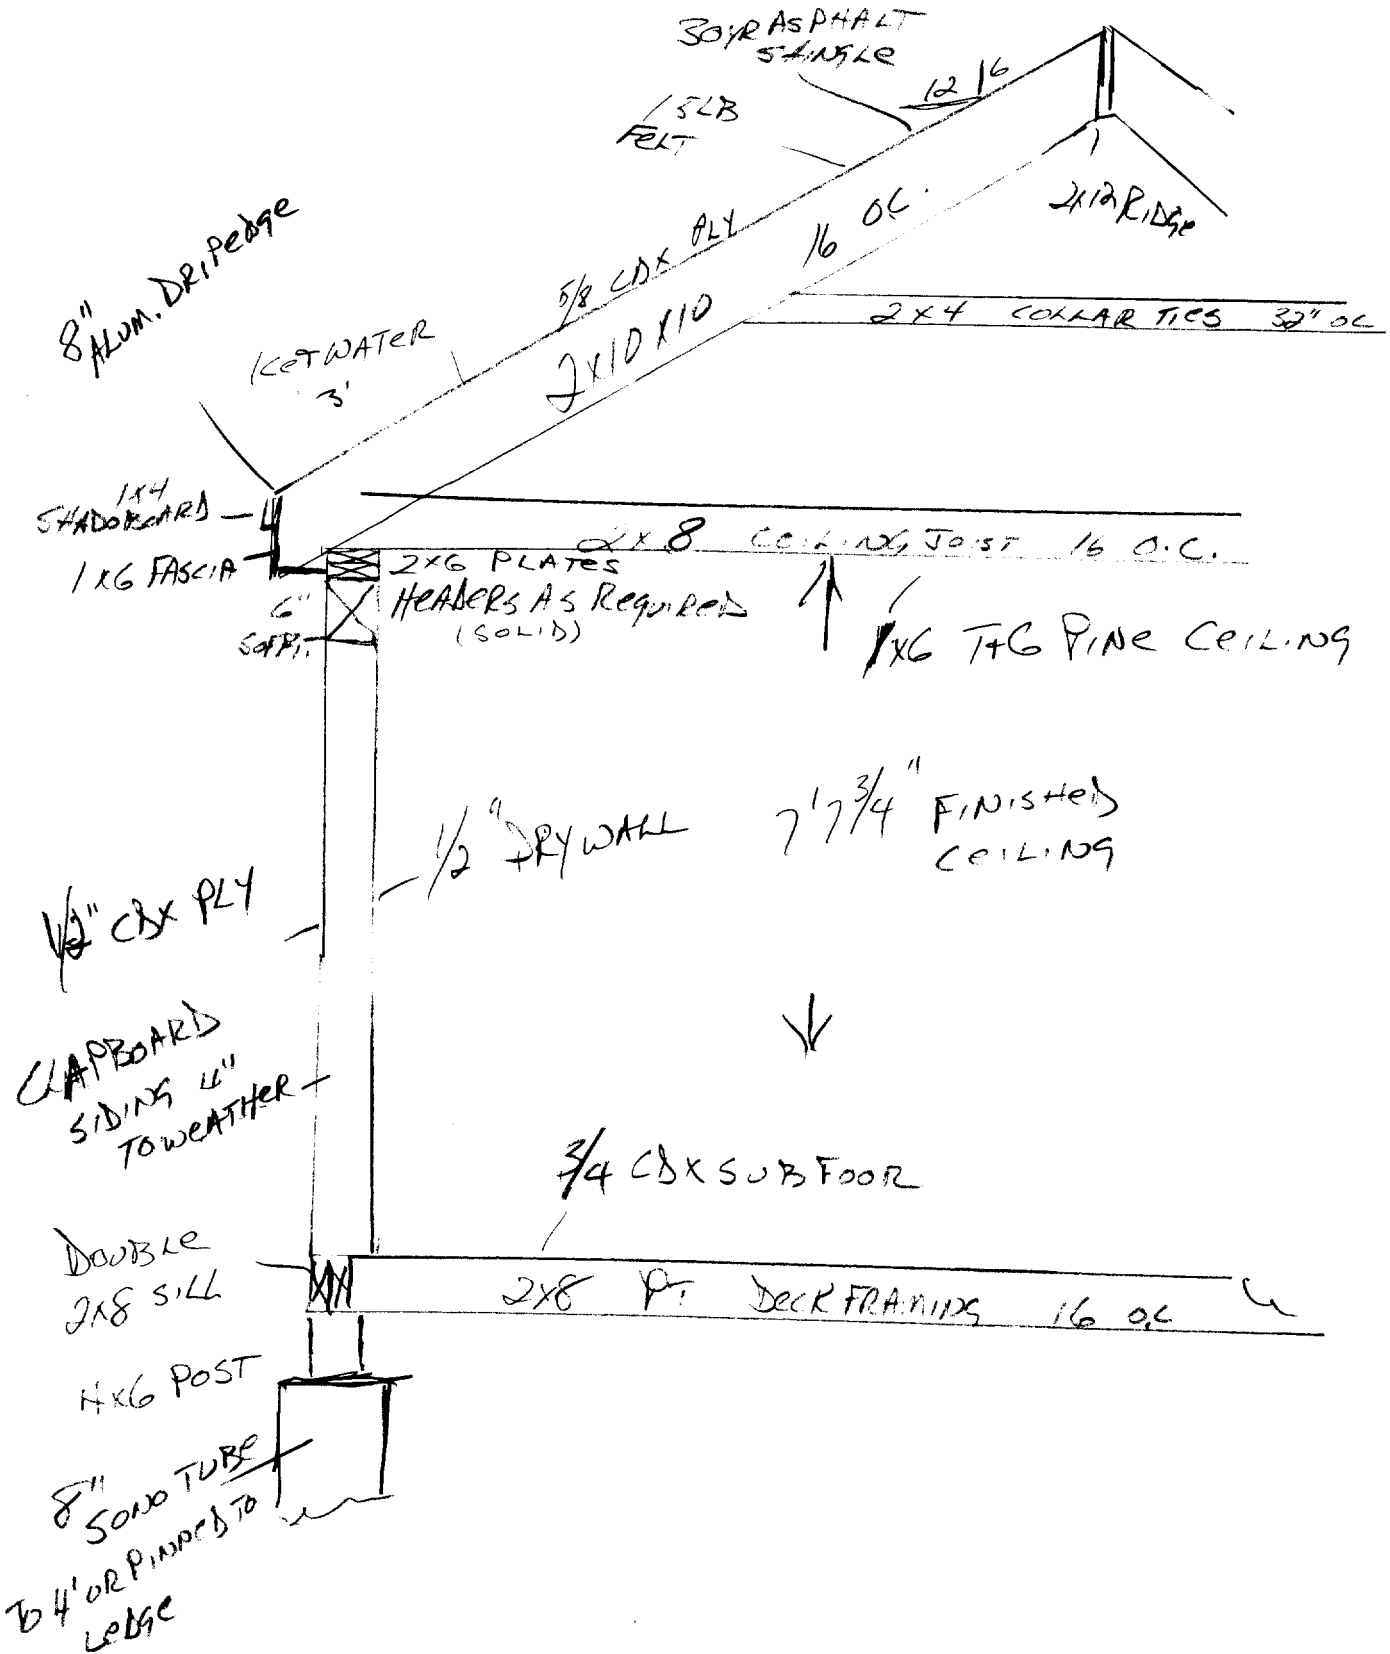 30YR ASPHALT
SHINGLE
12 6
15LB
FELT
2x12 RIDGE
16 OC.
5/8 CDX PLY
2x10x10
8"
ALUM. DRIPEDGE
ICE+WATER
3'
2x4 COLLAR TIES 32" OC
1x4
SHADOBOARD
1x6 FASCIA
2x8 CEILING JOIST 16 O.C.
2x6 PLATES
HEADERS AS REQUIRED
(SOLID)
6"
SOFFIT.
1x6 T+G PINE CEILING
1/2" DRYWALL
7'7 3/4" FINISHED
CEILING
1/2" CDX PLY
CLAPBOARD
SIDING 4"
TO WEATHER
3/4 CDX SUBFOOR
DOUBLE
2x8 SILL
2x8 PT DECK FRAMING 16 O.C
4x6 POST
8"
SONO TUBE
TO 4' OR PINNED TO
LEDGE